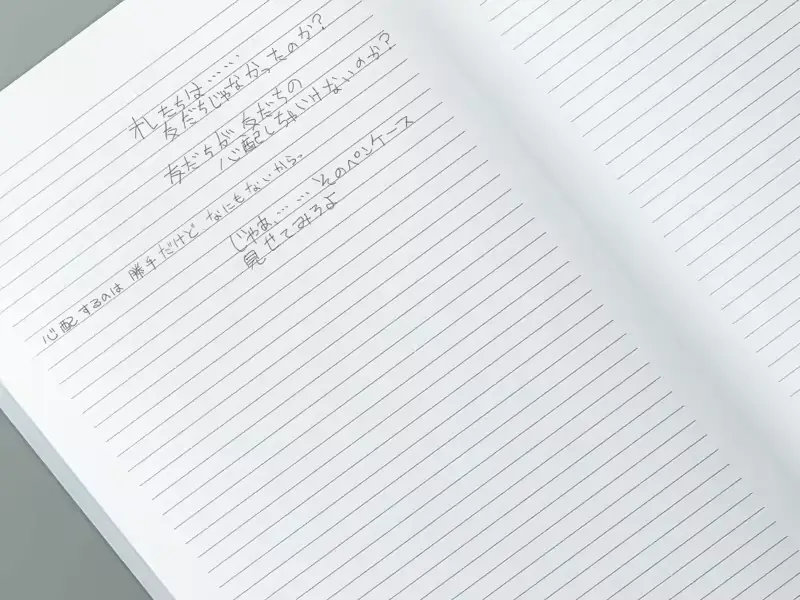 れたちは……
友だちじゃなかったのか？
友だちが、友だちの
心配しちゃいけないのか？
心配するのは勝手だけど なにもないから。
じゃあ、……そのペンケース
見せてみろよ